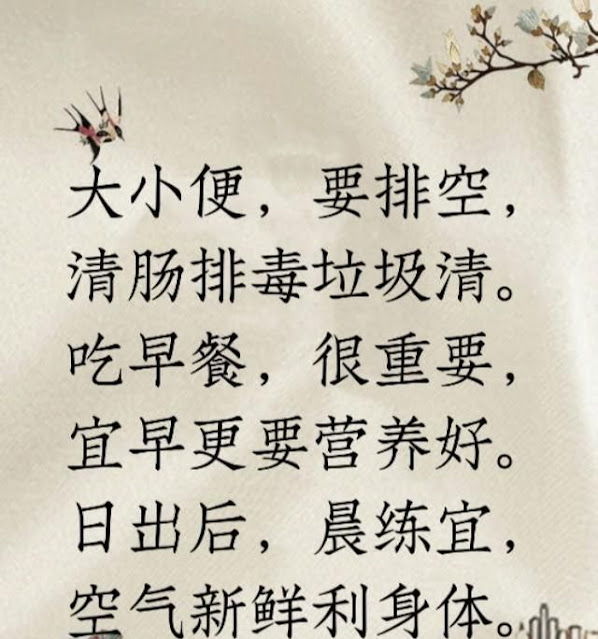 大小便，要排空，
清肠排毒垃圾清。
吃早餐，很重要，
宜早更要营养好。
日出后，晨练宜，
空气新鲜利身体。